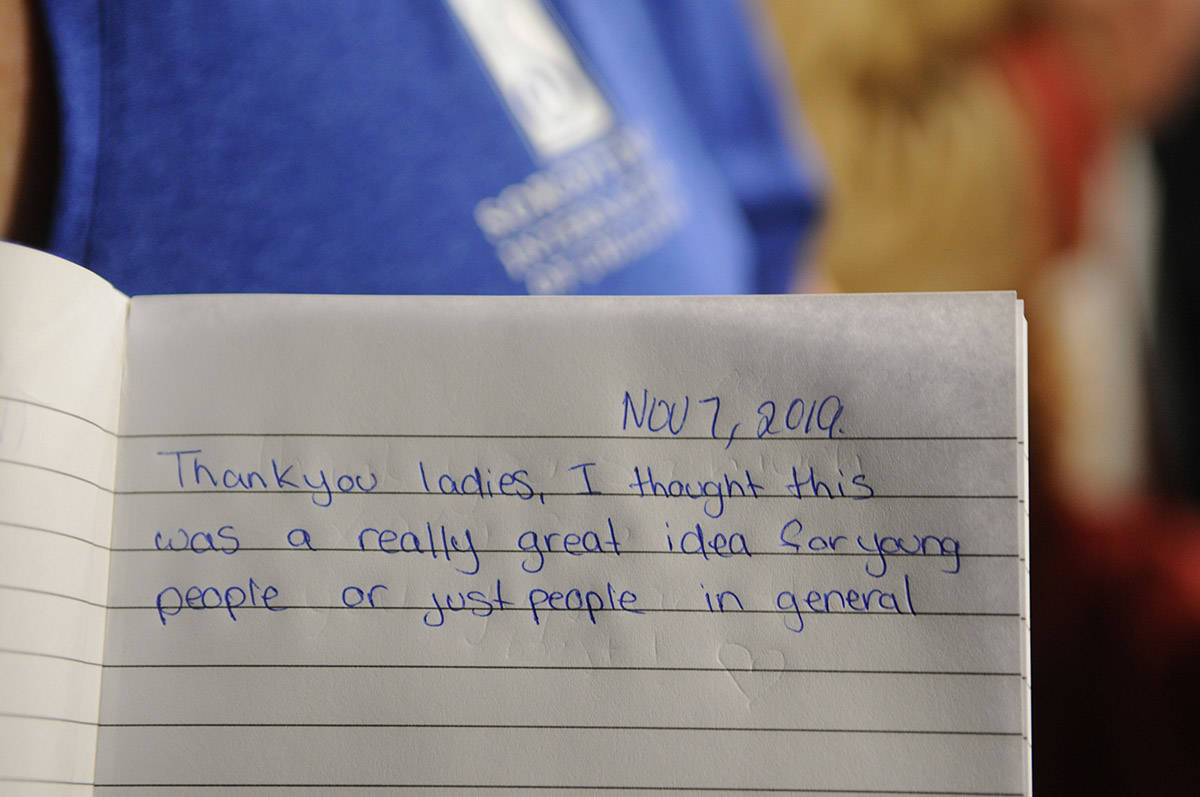 Nov 7, 2019.
Thankyou ladies, I thought this
was a really great idea for young
people or just people in general